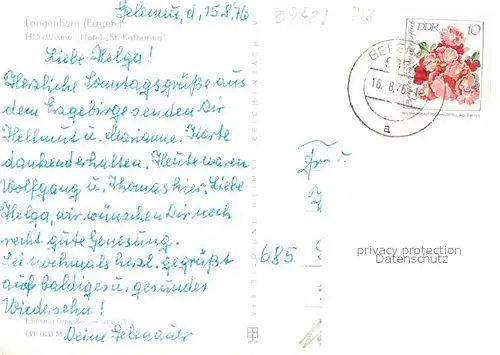 Gelenau, d. 15.8.76
Langenberg (Erzgeb.)
HO-Wismut-Hotel "St. Katharina"
Liebe Helga!
Herzliche Sonntagsgrüße aus
dem Erzgebirge senden Dir
Hellmut u. Marianne. Karte
dankend erhalten. Heute waren
Wolfgang u. Thomas hier. Liebe
Helga, wir wünschen Dir noch
recht gute Genesung.
Sei nochmals herzl. gegrüßt
auf baldiges u. gesundes
Wiedersehn!
Deine Gelenauer
DDR 10
16.8.76
a
Frau
685
privacy protection
Datenschutz